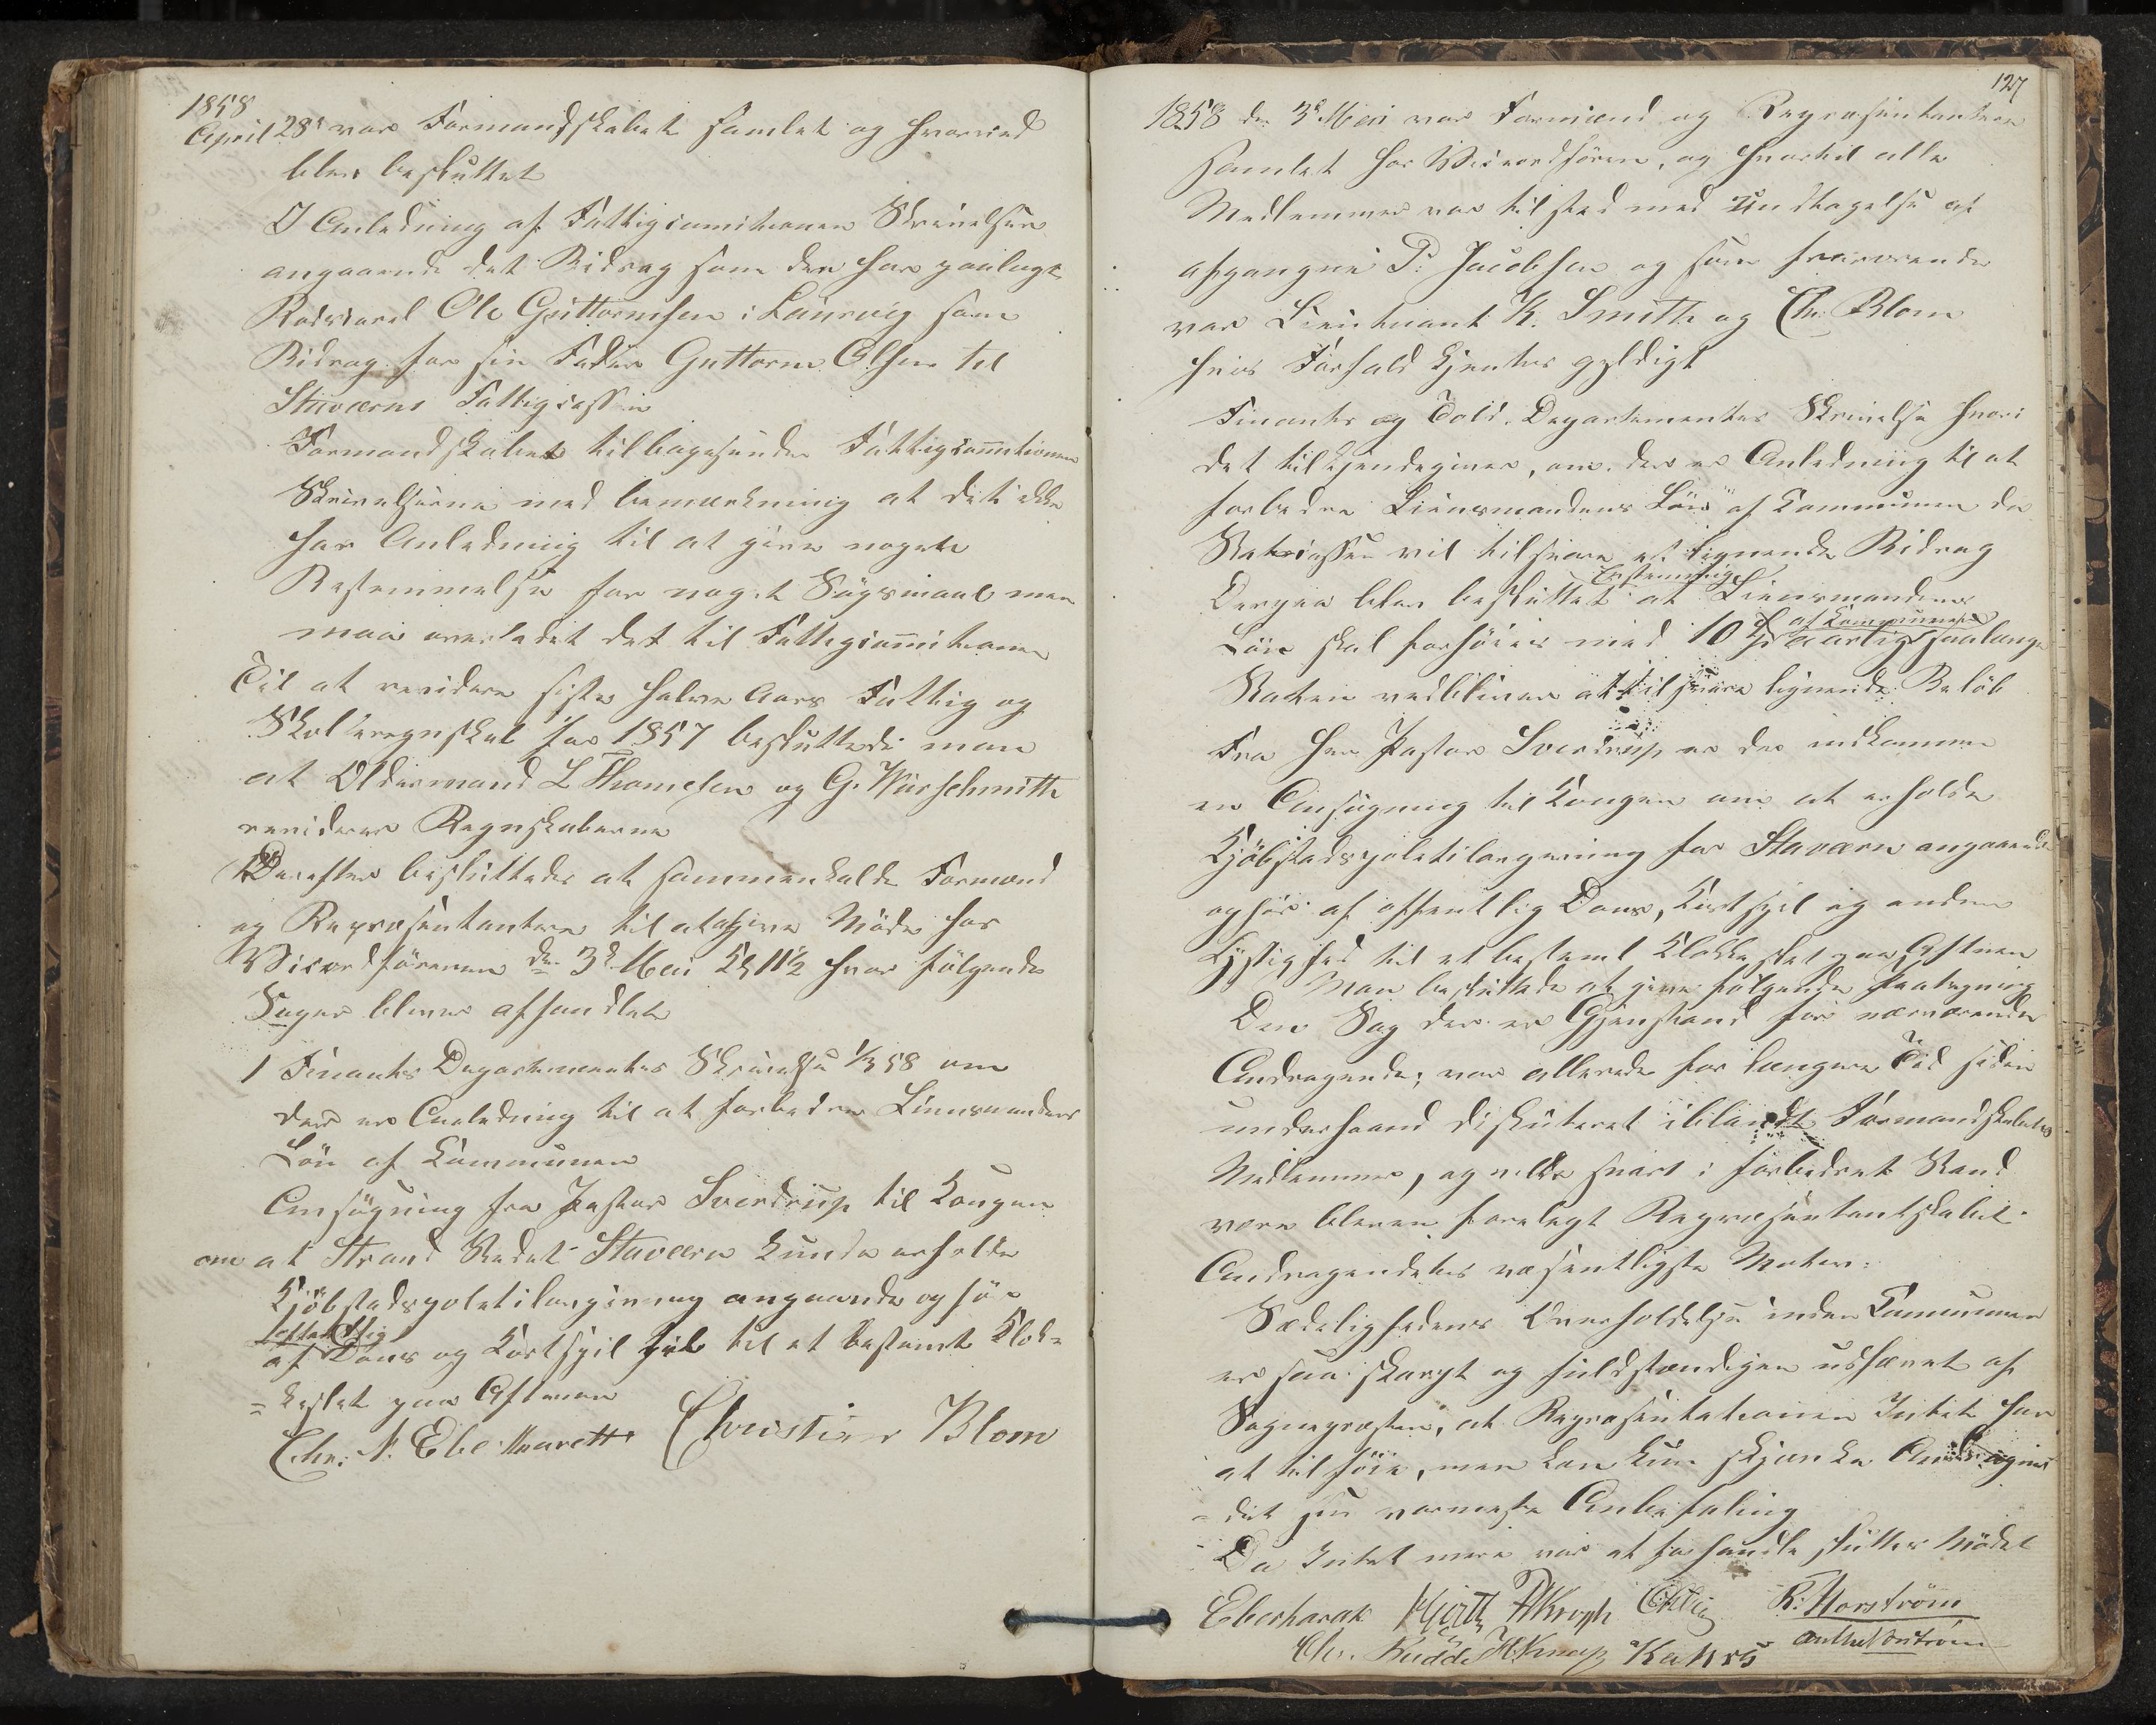 1858
April 28d var Formandskabet samlet og hvorved
blev besluttet
I Anledning af Fattigcommitionens Skrivelser
angaaende det Bidrag som der har paalagt
Ole Guttormsen i Laurvig som
Bidrag for sin Fader Guttorm Olsen til
Staværns Fattigcasse
Formandskabet tilbagesender Fattigcommitionens
Skrivelserne med bemærkning at det ikke
har Anledning til at give nogen
Bestemmelse for noget Søgsmaal men
maa overladet det til Fattigcommitionen
Til at revidere siste halve Aars Fattig og
Skoleregnskab for 1857 besluttede man
at Oldermand L Thomesen og G. Würschmitt
reviderer Regnskaberne
Derefter besluttedes at sammenkalde Formænd
og Repræsentanter til at afgive Møde hos
Viceordføreren den 3d Mai Kl 11½ hvor følgende
Sager bliver afhandlet
1 Finants Departementets Skrivelse 1/3 58 om
der er Anledning til at forbedre Linnsmandens
Løn af Kommunen
Ansøgning fra Pastor Sverdrup til Kongen
om at Strand Stedet Stavern kunde erholde
Kjøbstadspoletilovgivning angaaende ophør
offentlig
af Dans og Kortspil til et bestemt Klok=
=keslet paa Aftenen
Chr. N. Eberharett Christian Blom
127
1858 den 3d Mai var Formænd og Repræsentantere
samlet hos Viceordføren, og hvortil alle
Medlemmer var tilsted med Undtagelse af
afgangne P. Jacobsen og som fraværende
var Lieutnant K. Smith og Chr. Blom
hvis Forfald kjentes gyldigt
Finants og Told. Departementets Skrivelse hvori
det tilkjendegives, om der er Anledning til at
forbedre Liensmandens Løn af Kommunen da
Statscassen vil tilsvare et lignende Bidrag
Enstemmig
Derpaa blev besluttet at Liensmandens
af Kommunen
Løn skal forhøies med 10 Spd aarlig saalenge
Staten vedbliver at tilsvare lignende Beløb
Fra Her Pastor Sverdrup er der indkommen
en Ansøgning til Kongen om at erholde
Kjøbstadspoletilovgivning for Staværn angaaende
ophør af offentlig Dans, Kortspil og anden
Lystighed til et bestemt Klokkeslet paa Aftenen
Man besluttede at give følgende Paategning
Den Sag der er Gjenstand for nærværende
Andragende; var allerede for længere Tid siden
underhaand diskuteret iblandt Formandskabets
Medlemmer, og vilde snart i forbedret Stand
være bleven forelagt Repræsentantskabet.
Andragendets væsentligste Motiv:
Sædelighedens Overholdelse inden Communen
er saa skarpt og fuldstændigen udhævet af
Sognepræsten, at Repræsentationen Intet har
at tilføie, men kan kun skjænke Andragen
=det sin varmeste Anbefaling
Da Intet mere var at forhandle sluttes Mødet
Eberharat Hjorth R. Norstrøm
Chr. Budde H. Knap Kahrs